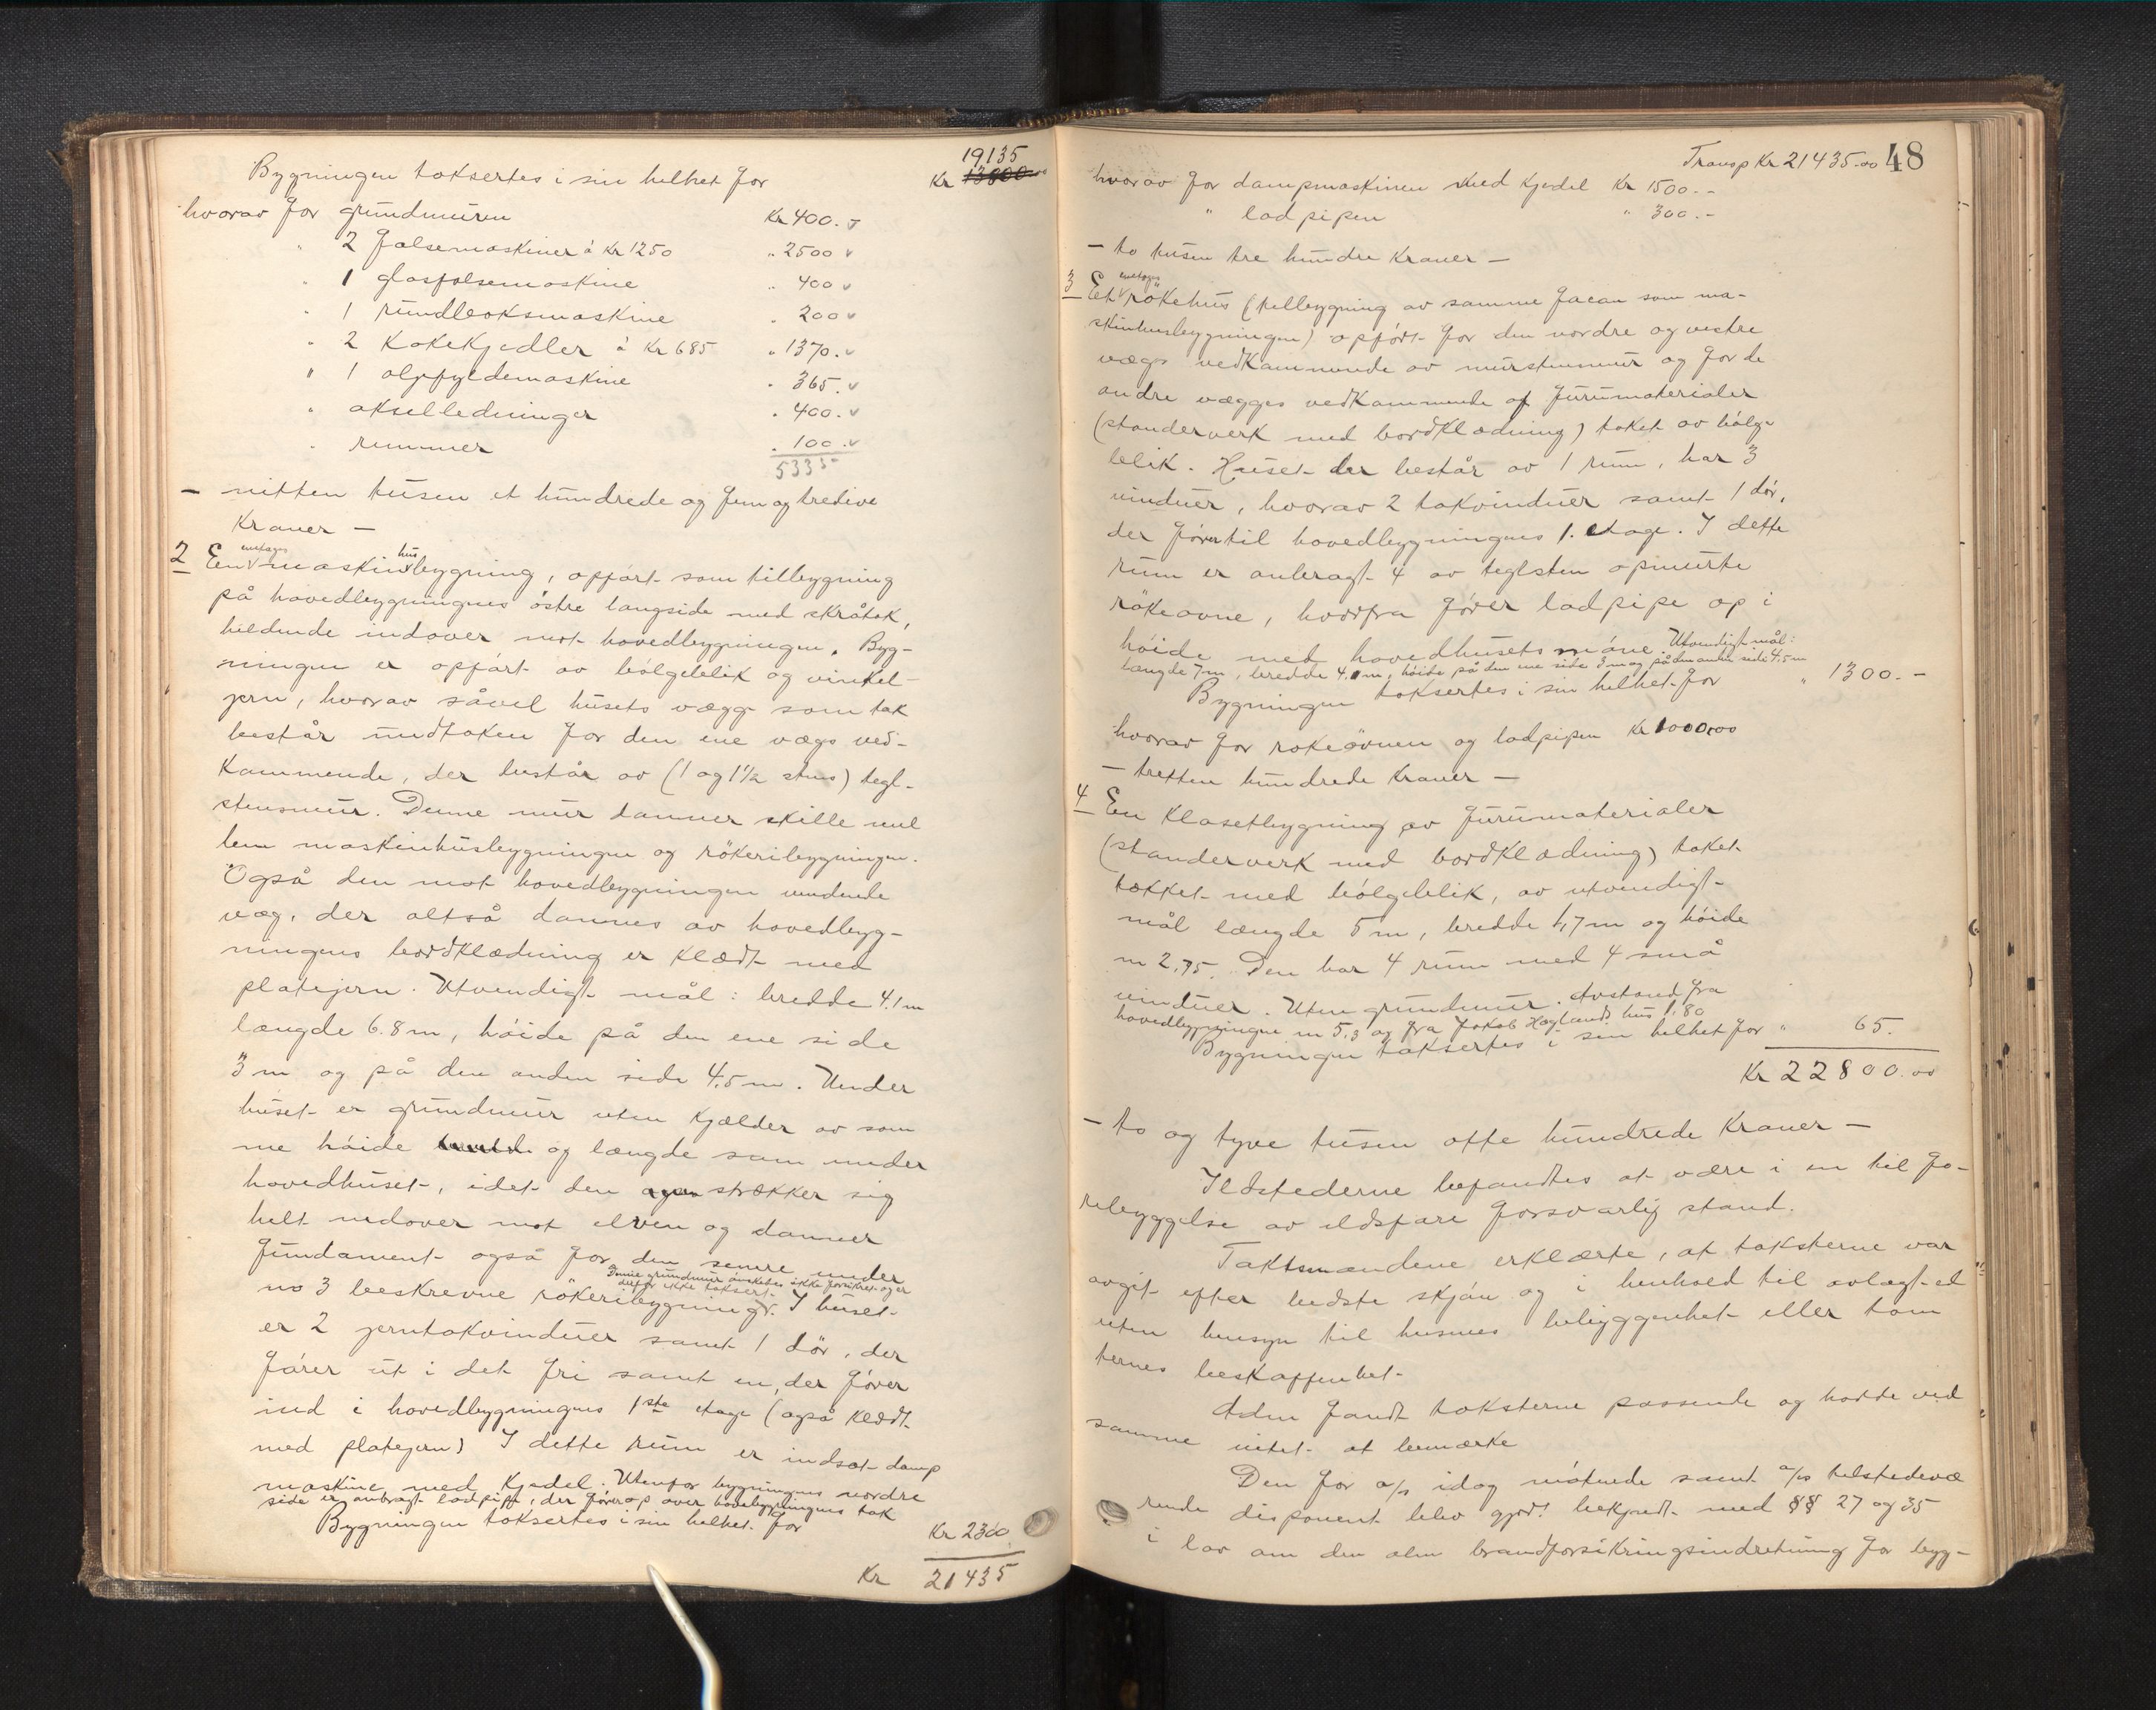 Bygningen taksertes i sin helhet for Kr 13800.00 19135
hvorav for grundmuren Kr 400.-
" 2 falsemaskiner á Kr 1250 " 2500
" 1 glasfalsemaskine " 400
" 1 rundboksmaskine " 200
" 2 Kokekjedler á Kr 685 " 1370.
" 1 oljefyldemaskine " 365.
" akselledninger " 400.
" remmer " 100.
5335-
- nitten tusen et hundrede og fem og tredive
Kroner -
2 En enetages maskinhusbygning, opført som tilbygning
på hovedbygningens østre langside med skråtak,
heldende indover mot hovedbygningen. Byg-
ningen er opført av bølgeblik og vinkel-
jern, hvorav såvel husets vægge som tak
består undtaken for den ene vægs ved-
kommende, der består av (1 og 1½ stens) tegl-
stensmur. Denne mur danner skille mel
lem maskinhusbygningen og rökeribygningen.
Også den mot hovedbygningen vendende
væg, der altså dannes av hovedbyg-
ningens bordklædning er klædt med
platejern. Utvendigt mål: bredde 4.1 m
længde 6.8 m, höide på den ene side
3 m og på den anden side 4,5 m. Under
huset er grundmur uten Kjælder av sam
me höide og længde som under
hovedhuset, idet den strækker sig
helt nedover mot elven og danner
fundament også for den senere under
no 3 beskrevne rökeribygning. Denne grundmur ønskedes ikke forsikret og er
derfor ikke taksert. I huset
er 2 jerntakvinduer samt 1 dör, der
förer ut i det fri samt en, der förer
ind i hovedbygningens 1ste etage (også klædt
med platejern) I dette rum er indsat damp
maskine med Kjedel. Utenfor bygningens nordre
side er anbragt ladpipe, der förer op over hovedbygningens tak
Bygningen taksertes i sin helhet for Kr 2300
Kr 21435
Transp Kr 21435.00 48
hvorav for dampmaskinen med Kjedel Kr 1500.-
" ladpipen " 300.-
- to tusen tre hundre Kroner -
3 Et enetages rökehus (tilbygning av samme facan som ma-
skinhusbygningen) opført for den nordre og vestre
vægs vedkommende av murstensmur og for de
andre vægges vedkommende af furumaterialer
(standerverk med bordklædning) taket av bölge
blik. Huset der består av 1 rum, har 3
vinduer, hvorav 2 takvinduer samt 1 dör,
der förer til hovedbygningens 1. etage. I dette
rum er anbragt 4 av teglsten opmurte
rökeovne, hvorfra förer ladpipe op i
höide med hovedhusets möne. Utvendigt mål:
længde 7 m, bredde 4,1 m, höide på den ene side 3 m og på den anden side 4,5 m
Bygningen taksertes i sin helhet for " 1300.-
hvorav for rökeovnen og ladpipen Kr 1000,00
- tretten hundrede Kroner -
4 En Klosetbygning av furumaterialer
(standerverk med bordklædning) taket
tækket med bölgeblik, av utvendigt
mål længde 5 m, bredde 1,7 m og höide
m 2,75. Den har 4 rum med 4 små
vinduer. Uten grundmur. Avstand fra
hovedbygningen m 5,3 og fra Jakob Høglands hus 1.80
Bygningen taksertes i sin helhet for " 65.
Kr 22800.00
- to og tyve tusen otte hundrede Kroner -
Ildstederne befandtes at være i en til fo-
rebyggelse av ildsfare forsvarlig stand.
Takstmændene erklærte, at taksterne var
avgit efter bedste skjön og i henhold til avlagt ed
uten hensyn til husenes beliggenhet eller tom
ternes beskaffenhet.
fandt taksterne passende og hadde ved
samme intet at bemærke
Den for a/s idag mötende samt a/s tilstedevæ
rende disponent blev gjort bekjendt med §§ 27 og 35
i lov om den alm brandforsikringsindretning for byg-